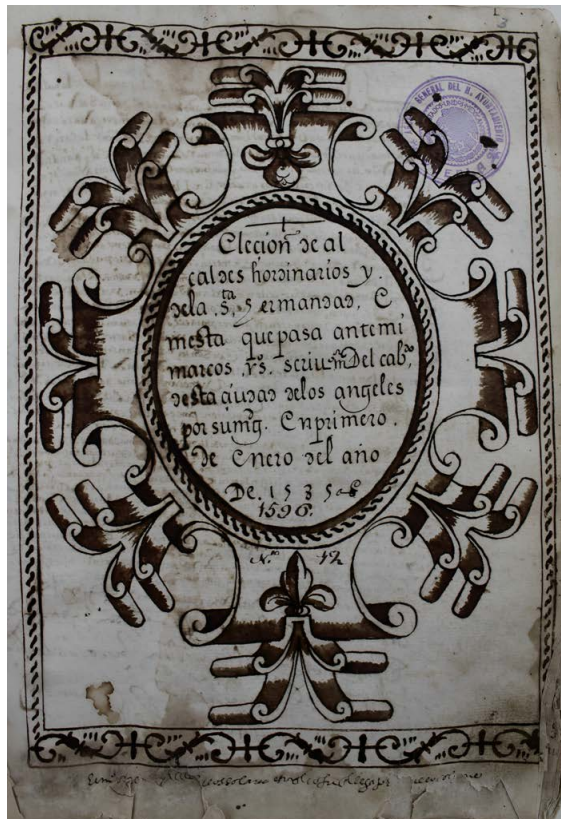 1
3
GENERAL DEL H. AYUNTAMIENTO
Elecion de al
caldes hordinarios y.
dela s.ta hermandad, E
mesta que pasa ante mi
marcos rs. scriuno Del cabdo,
desta ciudad delos angeles
por sumg. En primero.
de Enero del año
De. 1585 as
1596.
N.º 12